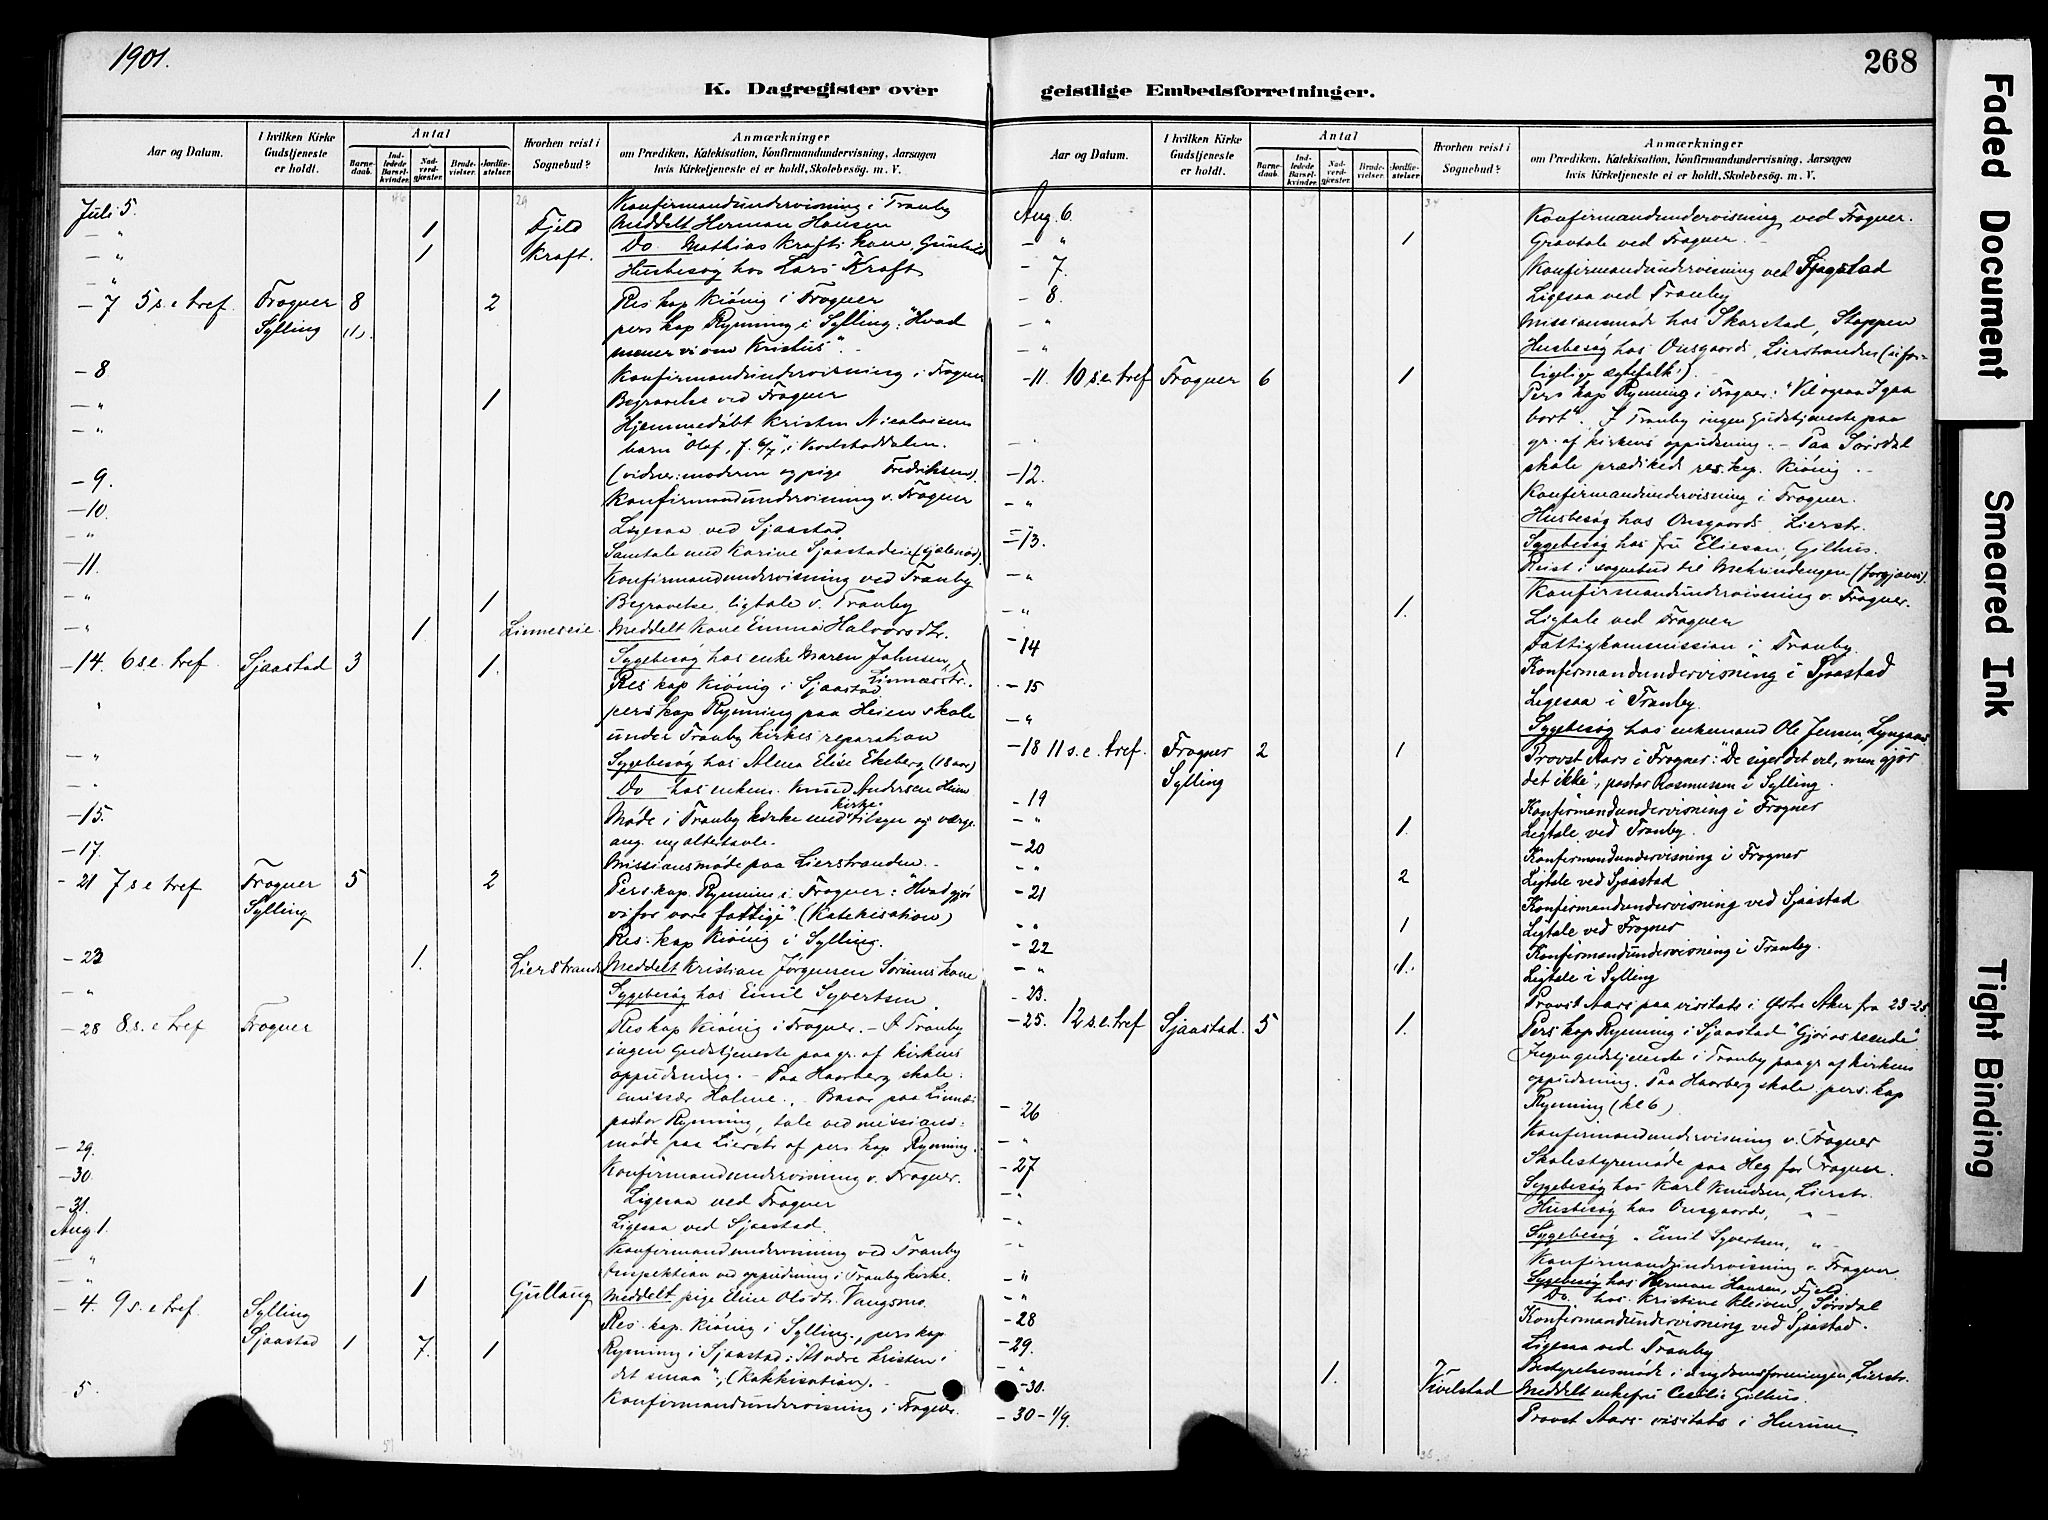 1901.
268
K. Dagregister over
geistlige Embedsforretninger.
Aar og Datum.
I hvilken Kirke Gudstjeneste er holdt.
Antal
Barnedaab.
Indledede Barselkvinder.
Nadverdgjester.
Brudevielser.
Jordfæstelser.
Hvorhen reist i Sognebud?
Anmærkninger
om Prædiken, Katekisation, Konfirmandundervisning, Aarsagen
hvis Kirketjeneste ei er holdt, Skolebesög. m. V.
Juli 5. Konfirmandundervisning i Tranby
" 1 Fjeld Meddelt Herman Hansen
" 1 Kraft. Do Mathias Krafts kone, Gunhild
" Husbesøg hos Lars Kraft
- 7 5 s. e tref. Frogner 8 2 Res kap Kiönig i Frogner
Sylling (1). pers kap Rynning i Sylling: "Hvad
mener vi om Kristus".
- 8 Konfirmandundervisning i Frogner
- " 1 Begravelse ved Frogner
- " Hjemmedöbt Kristen Nicolaisens
barn "Olaf, f. 6/7",
(vidner: moderen og pige Fredriksen).
- 9. Konfirmandundervisning v. Frogner
- 10. Ligesaa ved Sjaastad
- " Samtale med Karine Sjaastadeie (sjælenød).
- 11. Konfirmandundervisning ved Tranby
- " 1 Begravelse, ligtale v. Tranby
" 1. Linneseie. Meddelt Kone Emma Halvorsdtr.
Sygebesög hos enke Maren Johnsen,
Linnesstr.
- 14. 6 s. e. tref. Sjaastad 3 1. Res kap Kiönig i Sjaastad
" pers kap Rynning paa Heien skole
under Tranby kirkes reparation
- " Sygebesög hos Alma Elise Ekeberg (18 aar)
- " Do hos enkem. Knud Andersen Heien
- 15. Møde i Tranby kirke med kirke-tilsyn og værge
ang. ny altertavle.
- 17. Missionsmøde paa Lierstranden.
- 21 7 s e tref Frogner 5 2 Pers. kap. Rynning i Frogner: "Hvad gjør
Sylling vi for vore fattige". (Katekisation)
Res. kap Kiönig i Sylling.
- 23 1. Lierstrand Meddelt Kristian Jörgensen Sørums kone
- " Sygebesög hos Emil Syvertsen
- 28 8. s. e tref Frogner Res kap Kiönig i Frogner. - I Tranby
ingen Gudstjeneste paa gr. af kirkens
oppudsning. - Paa Haarberg skole:
emissær Holme. - Basar paa Linnes:
pastor Rynning, tale ved missions-
møde paa Lierstr af pers kap Rynning.
- 29. Konfirmandundervisning v. Frogner.
- 30 Ligesaa ved Frogner
- 31. Ligesaa ved Sjaastad.
Aug 1. Konfirmandundervisning ved Tranby
- " Inspektion ved oppudsning i Tranby kirke.
- " 1 Gullaug Meddelt pige Eline Olsdtr. Vangsmo.
- 4. 9 s. e tref. Sylling Res. kap. Kiönig i Sylling., pers kap
Sjaastad 1 7. 1 Rynning i Sjaastad: "At være kristen i
det smaa", (Katekisation).
5. Konfirmandundervisning i Frogner.
Aar og Datum.
I hvilken Kirke Gudstjeneste er holdt.
Antal
Barnedaab.
Indledede Barselkvinder.
Nadverdgjester.
Brudevielser.
Jordfæstelser.
Hvorhen reist i Sognebud?
Anmærkninger
om Prædiken, Katekisation, Konfirmandundervisning, Aarsagen
hvis Kirketjeneste ei er holdt, Skolebesög. m. V.
Aug. 6. Konfirmandundervisning ved Frogner.
- " 1 Gravtale ved Frogner.
- 7. Konfirmandundervisning ved Sjaastad
- 8. Ligesaa ved Tranby
- " Missionsmøde hos Skarstad, Stoppen
- " Husbesög hos Ousgaards, Lierstranden (ufor-
ligelige ægtefolk).
- 11. 10 s. e. tref Frogner 6 1 Pers kap Rynning i Frogner: "Vil ogsaa I gaa
bort". I Tranby ingen Gudstjeneste paa
gr. af kirkens oppudsning. - Paa Sørsdal
skole prædikede res. kap. Kiönig.
- 12. Konfirmandundervisning i Frogner.
- " Husbesög hos Ousgaards, Lierstr.
- 13. Sygebesög hos fru Eliesen, Gilhus.
Reist i sognebud til (forgjæves).
- " Konfirmandundervisning v. Frogner.
- " 1. Ligtale ved Frogner
- 14 Fattigkommission i Tranby.
Konfirmandundervisning i Sjaastad
- 15 Ligesaa i Tranby.
- " Sygebesög hos enkemand Ole Jensen, Lyngaas
- 18 11 s. e. tref. Frogner 2 1 Provst Aars i Frogner: "De siger det vel, men gjør
Sylling det ikke", pastor Rasmussen i Sylling.
- 19 Konfirmandundervisning i Frogner
- " 1. Ligtale ved Tranby.
- 20 Konfirmandundervisning i Frogner
- " 2 Ligtale ved Sjaastad
- 21 Konfirmandundervisning ved Sjaastad
- " 1 Ligtale ved Frogner
- 22 Konfirmandundervisning i Tranby.
- " 1. Ligtale i Sylling
- 23. Provst Aars paa visitats i Østre Aker fra 23-25.
- 25. 12 s. e. tref Sjaastad. 5 1. Pers kap Rynning i Sjaastad "Gjør os seende".
Ingen gudstjeneste i Tranby paa gr af kirkens
oppudsning. Paa Haarberg skole: pers. kap
Rynning (kl 6)
- 26 Konfirmandundervisning v. Frogner
- " Skolestyremøde paa Heg for Frogner.
- 27 Sygebesög hos Karl Knudsen, Lierstr.
- " Husbesög hos Ousgaards, " -
- " Sygebesög " Emil Syvertsen, " -
- " Konfirmandundervisning v. Frogner
- " Sygebesög hos Herman Hansen, Fjeld
- " Do. hos Kristine Kleiven, Sørsdal
- 28 Konfirmandundervisning ved Sjaastad.
- 29. Ligesaa ved Tranby
- " Bestyrelsesmøde i ungdomsforeningen, Lierstr.
- 30. 1. Kivelstad Meddelt enkefru Cecilie Gilhus.
- 30 - 1/9. Provst Aars visitats i Hurum.
Faded Document
Smeared Ink
Tight Binding